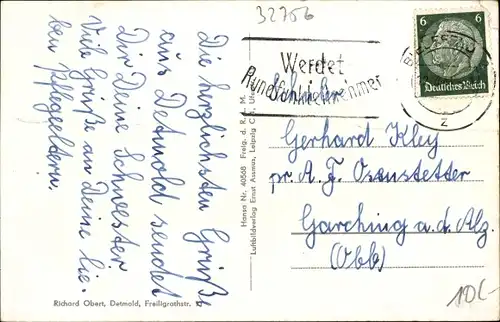 32756
Die herzlichsten Grüße
aus Detmold sendet
Dir Deine Schwester.
Viele Grüße an Deine lie.
ben Pflegeeltern.
Richard Obert, Detmold, Freiligrathstr.
Hansa Nr. 40568 Freig. d. R. L. M.
Luftbildverlag Ernst Assmus, Leipzig
Werdet
Rundfunkteilnehmer
6 6
Deutsches Reich
z
Schüler
Gerhard Kley
pr. A. F.
Garching a. d. Alz.
(Obb)
10,-